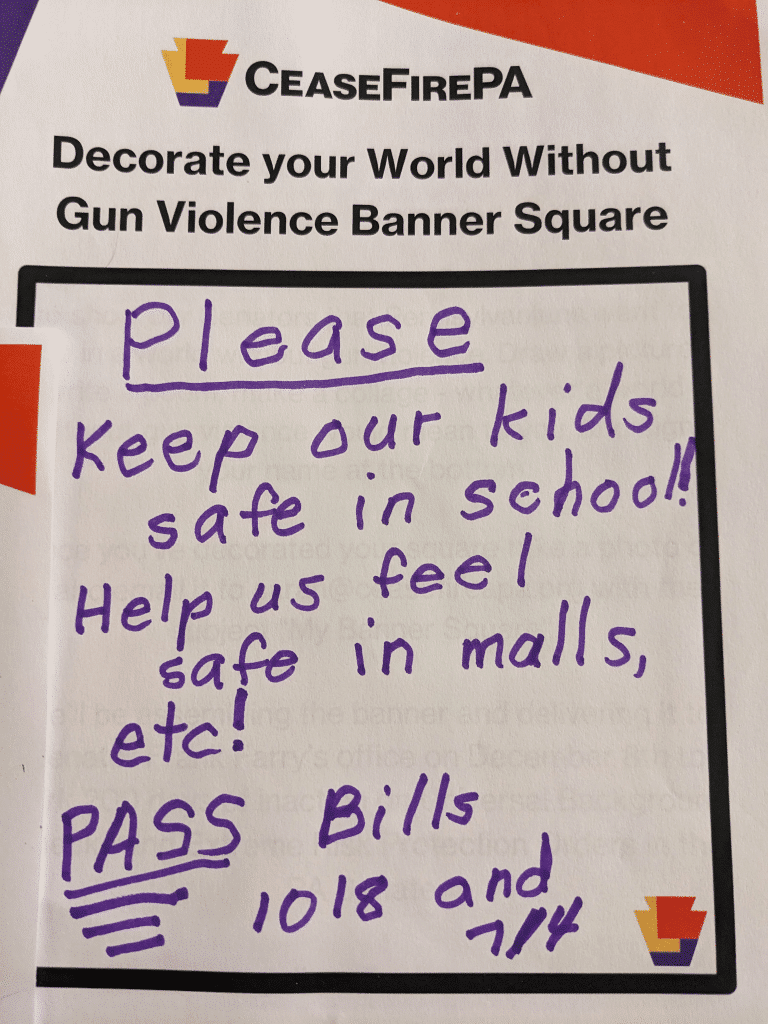 CEASEFIREPA
Decorate your World Without
Gun Violence Banner Square
Please
Keep our kids
safe in school!
Help us feel
safe in malls,
etc!
PASS Bills
1018 and
714